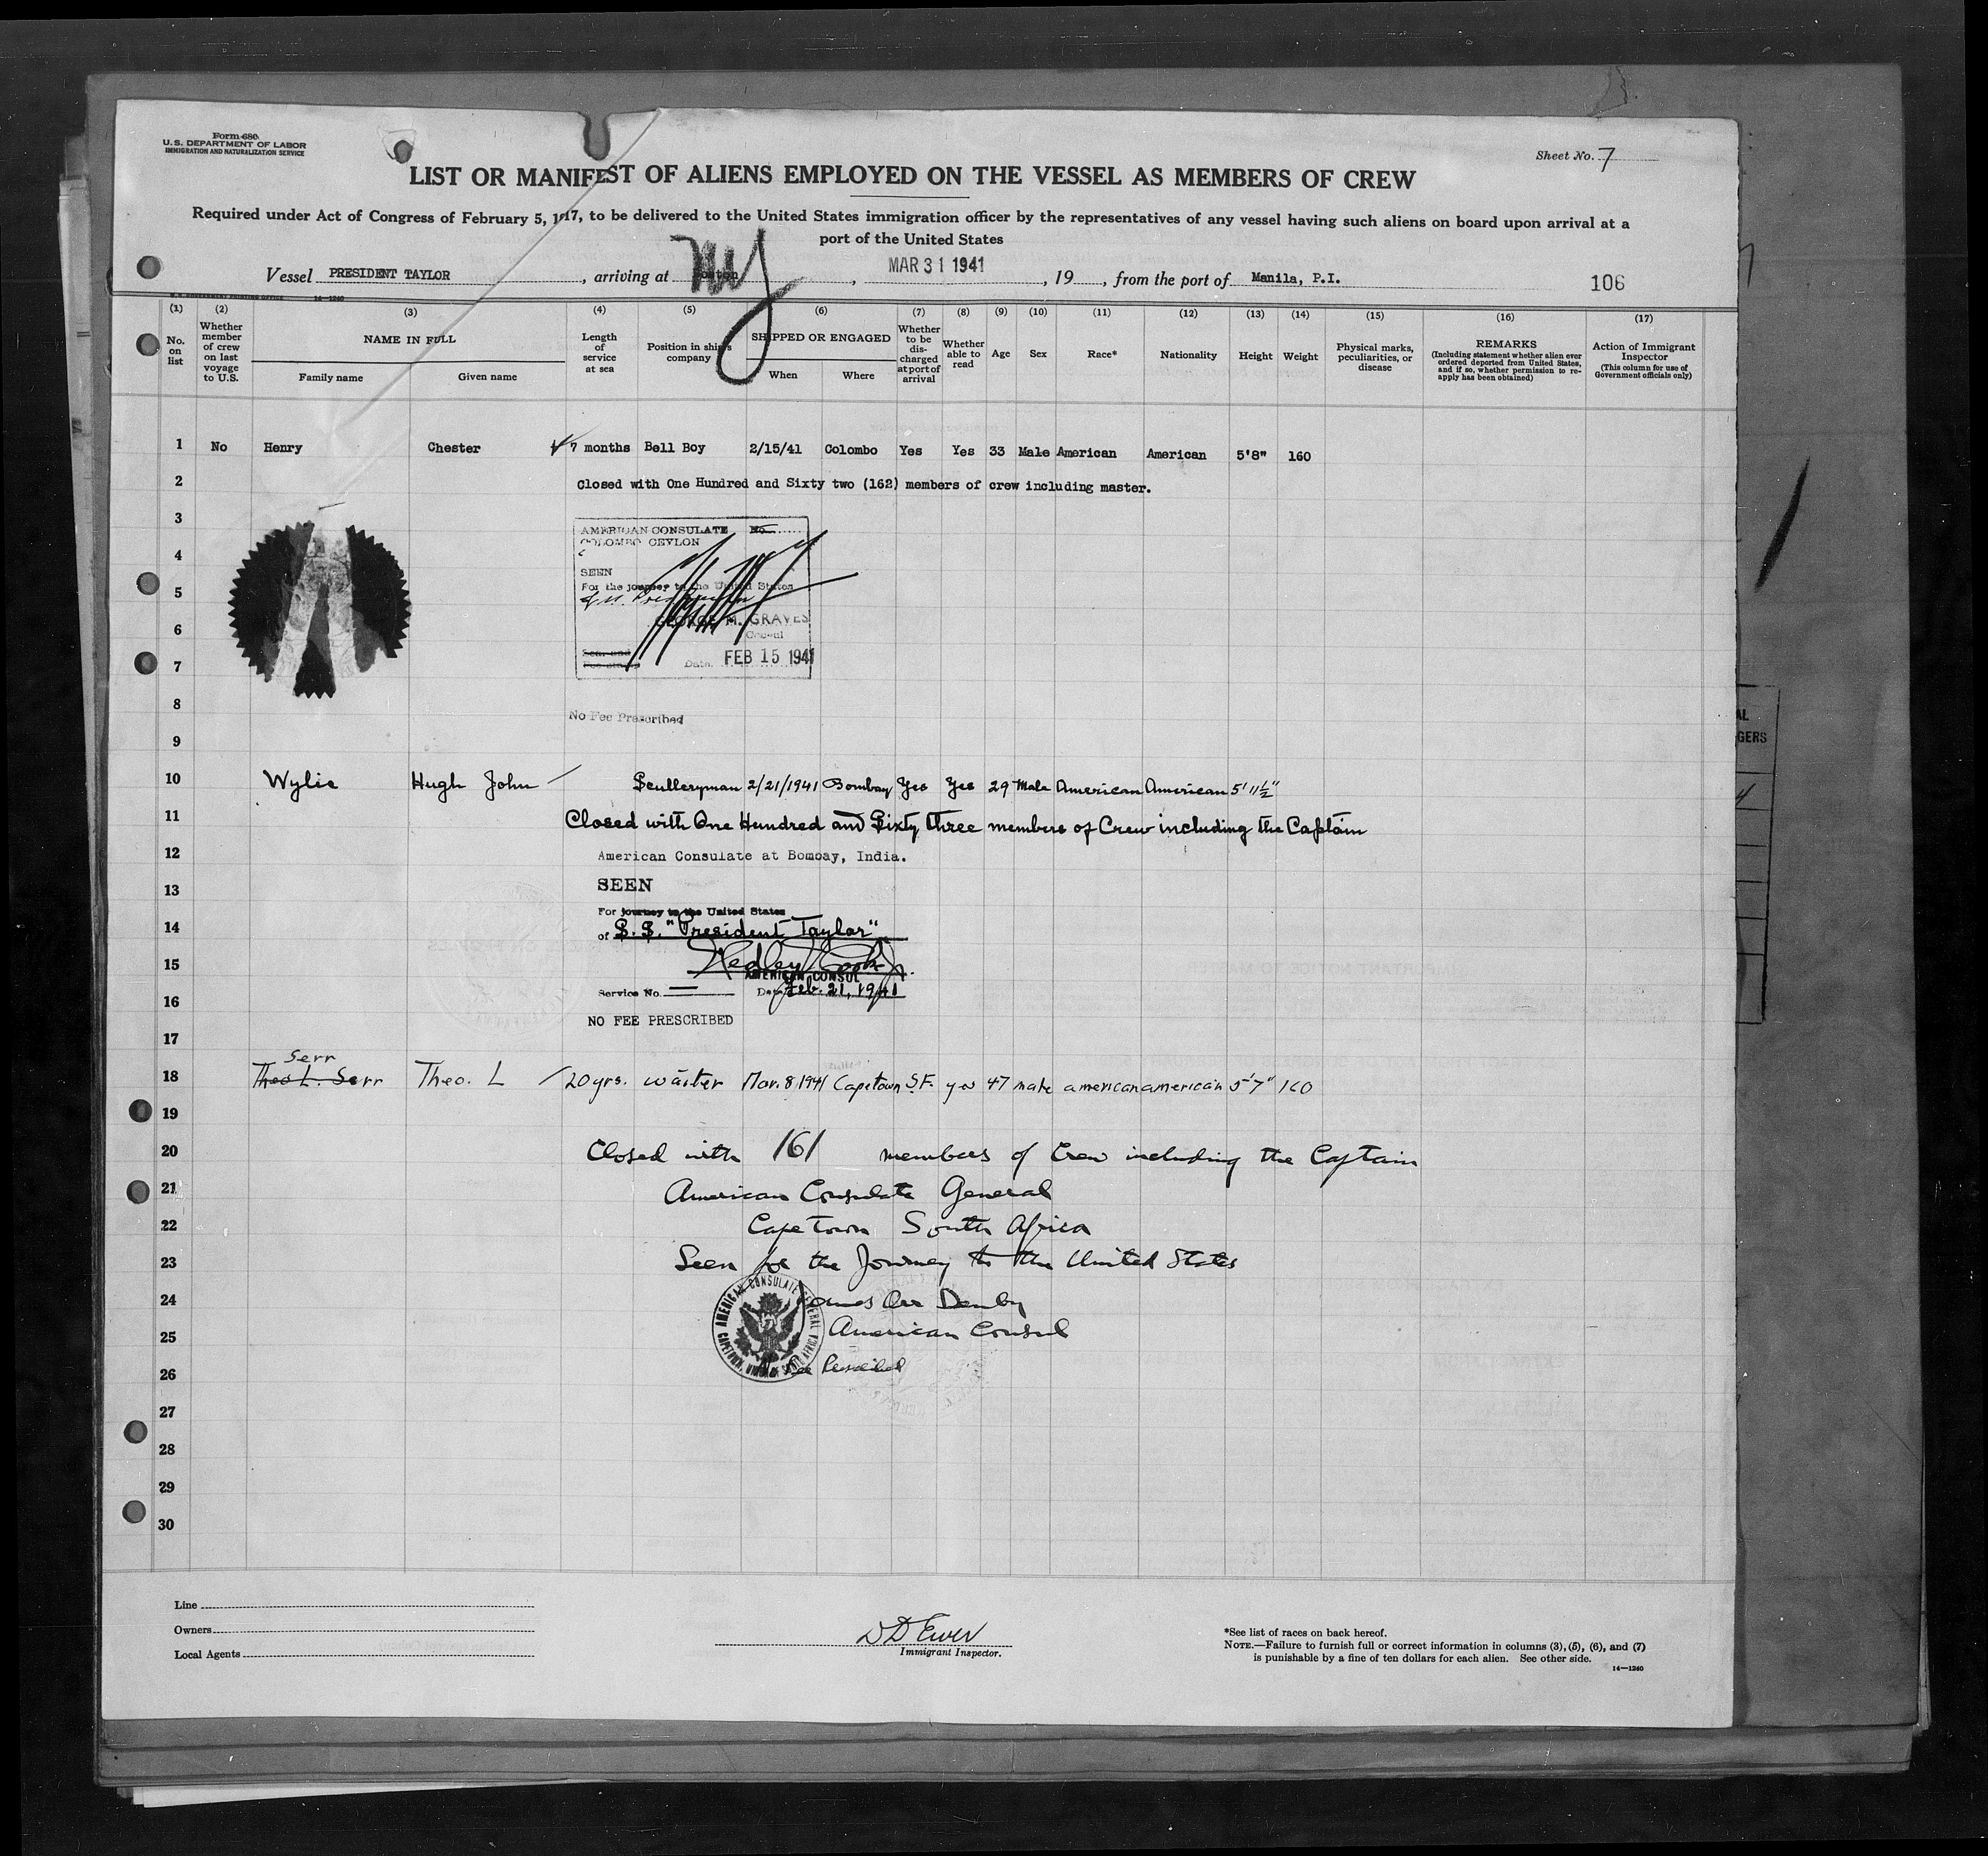 Form 680
U.S. DEPARTMENT OF LABOR
IMMIGRATION AND NATURALIZATION SERVICE
Sheet No. 7
LIST OR MANIFEST OF ALIENS EMPLOYED ON THE VESSEL AS MEMBERS OF CREW
Required under Act of Congress of February 5, 1917, to be delivered to the United States immigration officer by the representatives of any vessel having such aliens on board upon arrival at a
port of the United States
Vessel PRESIDENT TAYLOR, arriving at Boston NY, MAR 31 1941, 19, from the port of Manila, P.I.
106
U.S. GOVERNMENT PRINTING OFFICE 14—1240
(1) (2) (3) (4) (5) (6) (7) (8) (9) (10) (11) (12) (13) (14) (15) (16) (17)
No. on list
Whether member of crew on last voyage to U.S.
NAME IN FULL
Family name Given name
Length of service at sea
Position in ship's company
SHIPPED OR ENGAGED
When Where
Whether to be discharged at port of arrival
Whether able to read
Age
Sex
Race*
Nationality
Height
Weight
Physical marks, peculiarities, or disease
REMARKS
(Including statement whether alien ever ordered deported from United States, and if so, whether permission to re-apply has been obtained)
Action of Immigrant Inspector
(This column for use of Government officials only)
1 No Henry Chester 7 months Bell Boy 2/15/41 Colombo Yes Yes 33 Male American American 5'8" 160
2 Closed with One Hundred and Sixty two (162) members of crew including master.
3
AMERICAN CONSULATE No.
COLOMBO CEYLON
4
SEEN
5 For the journey to the United States
6 GEORGE M. GRAVES
Consul
7 Date FEB 15 1941
8 No Fee Prescribed
9
10 Wylie Hugh John Sculleryman 2/21/1941 Bombay Yes Yes 29 Male American American 5' 11½"
11 Closed with One Hundred and Sixty three members of Crew including the Captain
12 American Consulate at Bombay, India.
13 SEEN
For journey to the United States
14 of S.S. "President Taylor"
15
AMERICAN CONSUL
16 Service No. — Date Feb. 21, 1941
NO FEE PRESCRIBED
17
Serr
18 Theo L. Serr Theo. L 20 yrs. waiter Mar. 8 1941 Capetown S.F. yes 47 male american american 5'7" 160
19
20 Closed with 161 members of Crew including the Captain
21 American Consulate General
22 Cape Town South Africa
23 Seen for the Journey to the United States
24 James Orr Denby
25 American Consul
AMERICAN CONSULATE GENERAL
CAPETOWN, UNION OF SOUTH AFRICA
26 No Fee Prescribed
27
28
29
30
Line
Owners
Local Agents
D D Ewer
Immigrant Inspector.
*See list of races on back hereof.
NOTE.—Failure to furnish full or correct information in columns (3), (5), (6), and (7)
is punishable by a fine of ten dollars for each alien. See other side.
14—1240
AL
GERS